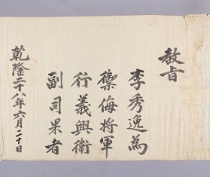 敎旨
李秀逸為
禦侮將軍
行義興衛
副司果者
乾隆二十八年六月二十日